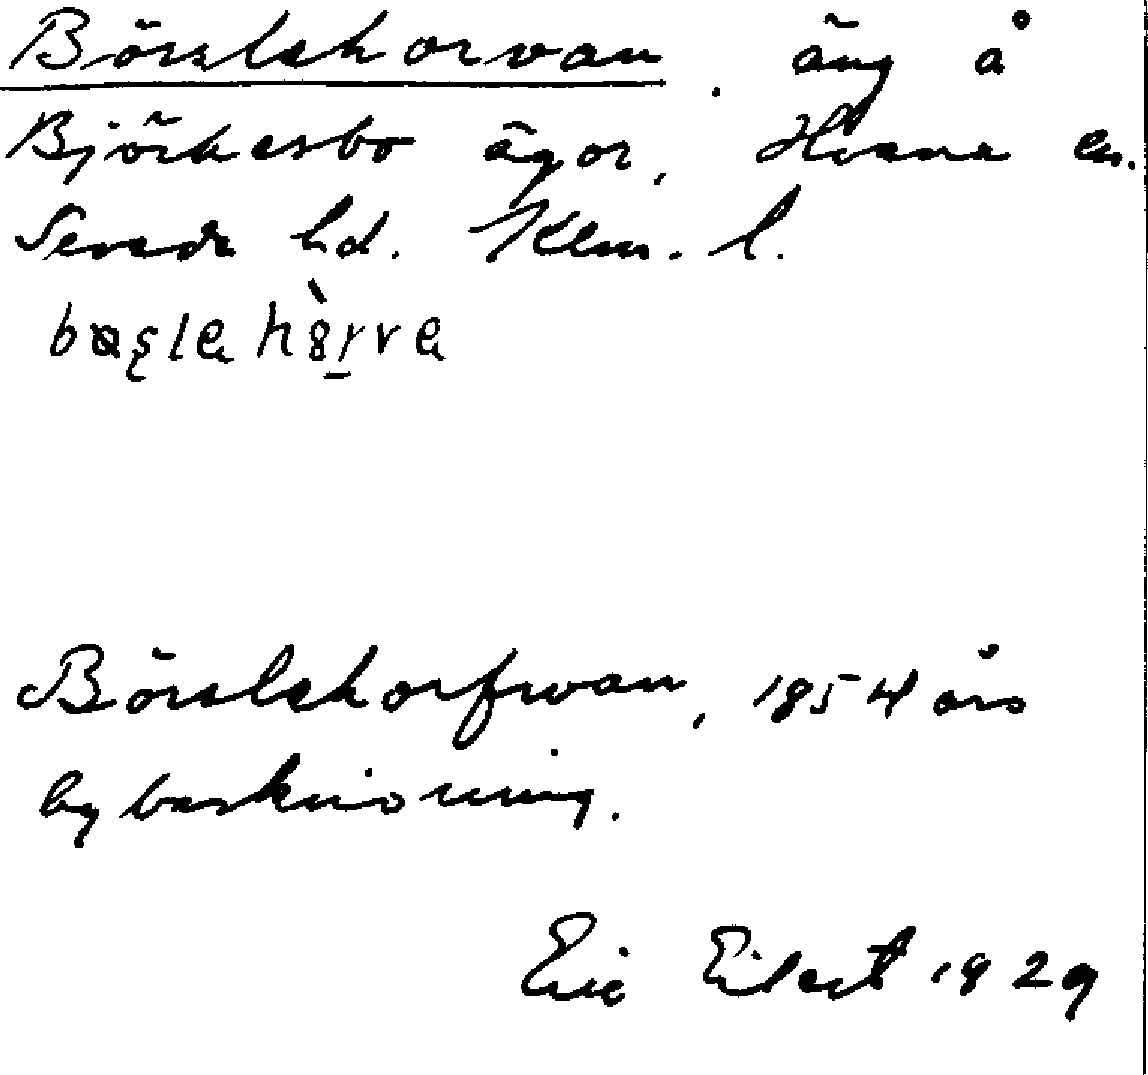 Börslehorvan. äng å
Björkesbo ägor, Hvena sn.
Sevede hd. Klm. l.
Börslehorfwan, 1854 års
bybeskrivning.
Eric Eilert 1929